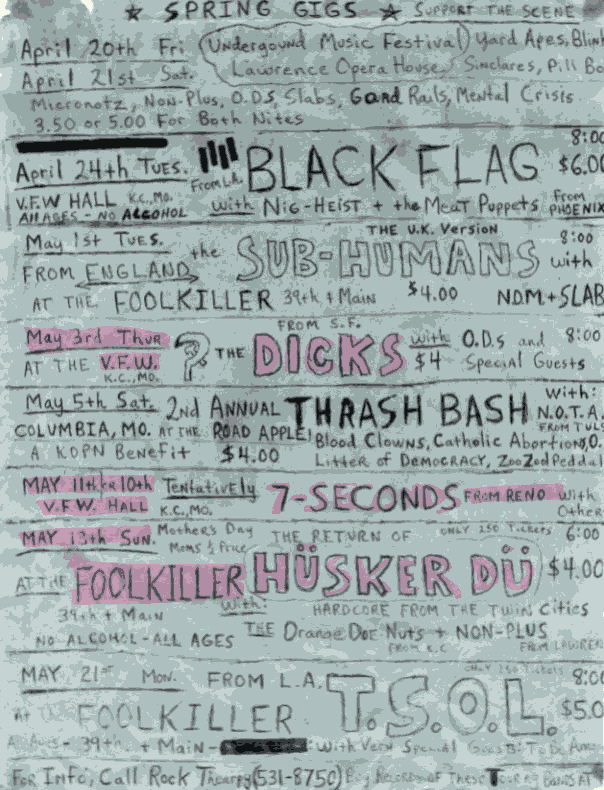 ★ SPRING GIGS ★ SUPPORT THE SCENE
April 20th Fri (Undergound Music Festival) Yard Apes, Blink
April 21st Sat. Lawrence Opera House Sinclares, Pill Bo
Micronotz, Non-Plus, O.D.S, Slabs, Gard Rails, Mental Crisis
3.50 or 5.00 For Both Nites
8:00
April 24th TUES. From L.A. BLACK FLAG $6.00
V.F.W HALL K.C., MO. with NIG-HEIST + the MEAT PUPPETS From PHOENIX
All AGES - NO ALCOHOL
May 1st Tues. THE U.K. Version 8:00
FROM ENGLAND the SUB-HUMANS with
AT THE FOOLKILLER 39th + Main $4.00 N.D.M. + SLAB
FROM S.F.
May 3rd Thur ? THE DICKS with O.D.s and 8:00
AT THE V.F.W. $4 Special Guests
K.C., MO.
May 5th Sat. 2nd ANNUAL THRASH BASH With:
COLUMBIA, MO. AT THE ROAD APPLE! N.O.T.A.
FROM TULS
A KOPN Benefit $4.00 Blood Clowns, Catholic Abortions, O.
Litter of DEMOCRACY, Zoo Zod Peddal
MAY 11th or 10th Tentatively 7-SECONDS FROM RENO with
V.F.W. HALL K.C., MO. Other
MAY 13th SUN. Mother's Day THE RETURN OF ONLY 250 Tickets 6:00
Moms ½ Price
AT THE FOOLKILLER HÜSKER DÜ $4.00
39th + Main with: HARDCORE FROM THE TWIN Cities
NO ALCOHOL - ALL AGES THE Orange Doe Nuts + NON-PLUS
FROM K.C. FROM LAWREN
ONLY 250 Tickets
MAY 21st Mon. FROM L.A. T.S.O.L. 8:00
At The FOOLKILLER $5.0
All Ages - 39th + Main - With Very Special Guests: To Be Ann
FOR Info, Call Rock Therapy (531-8750) Buy Records OF These Touring Bands AT